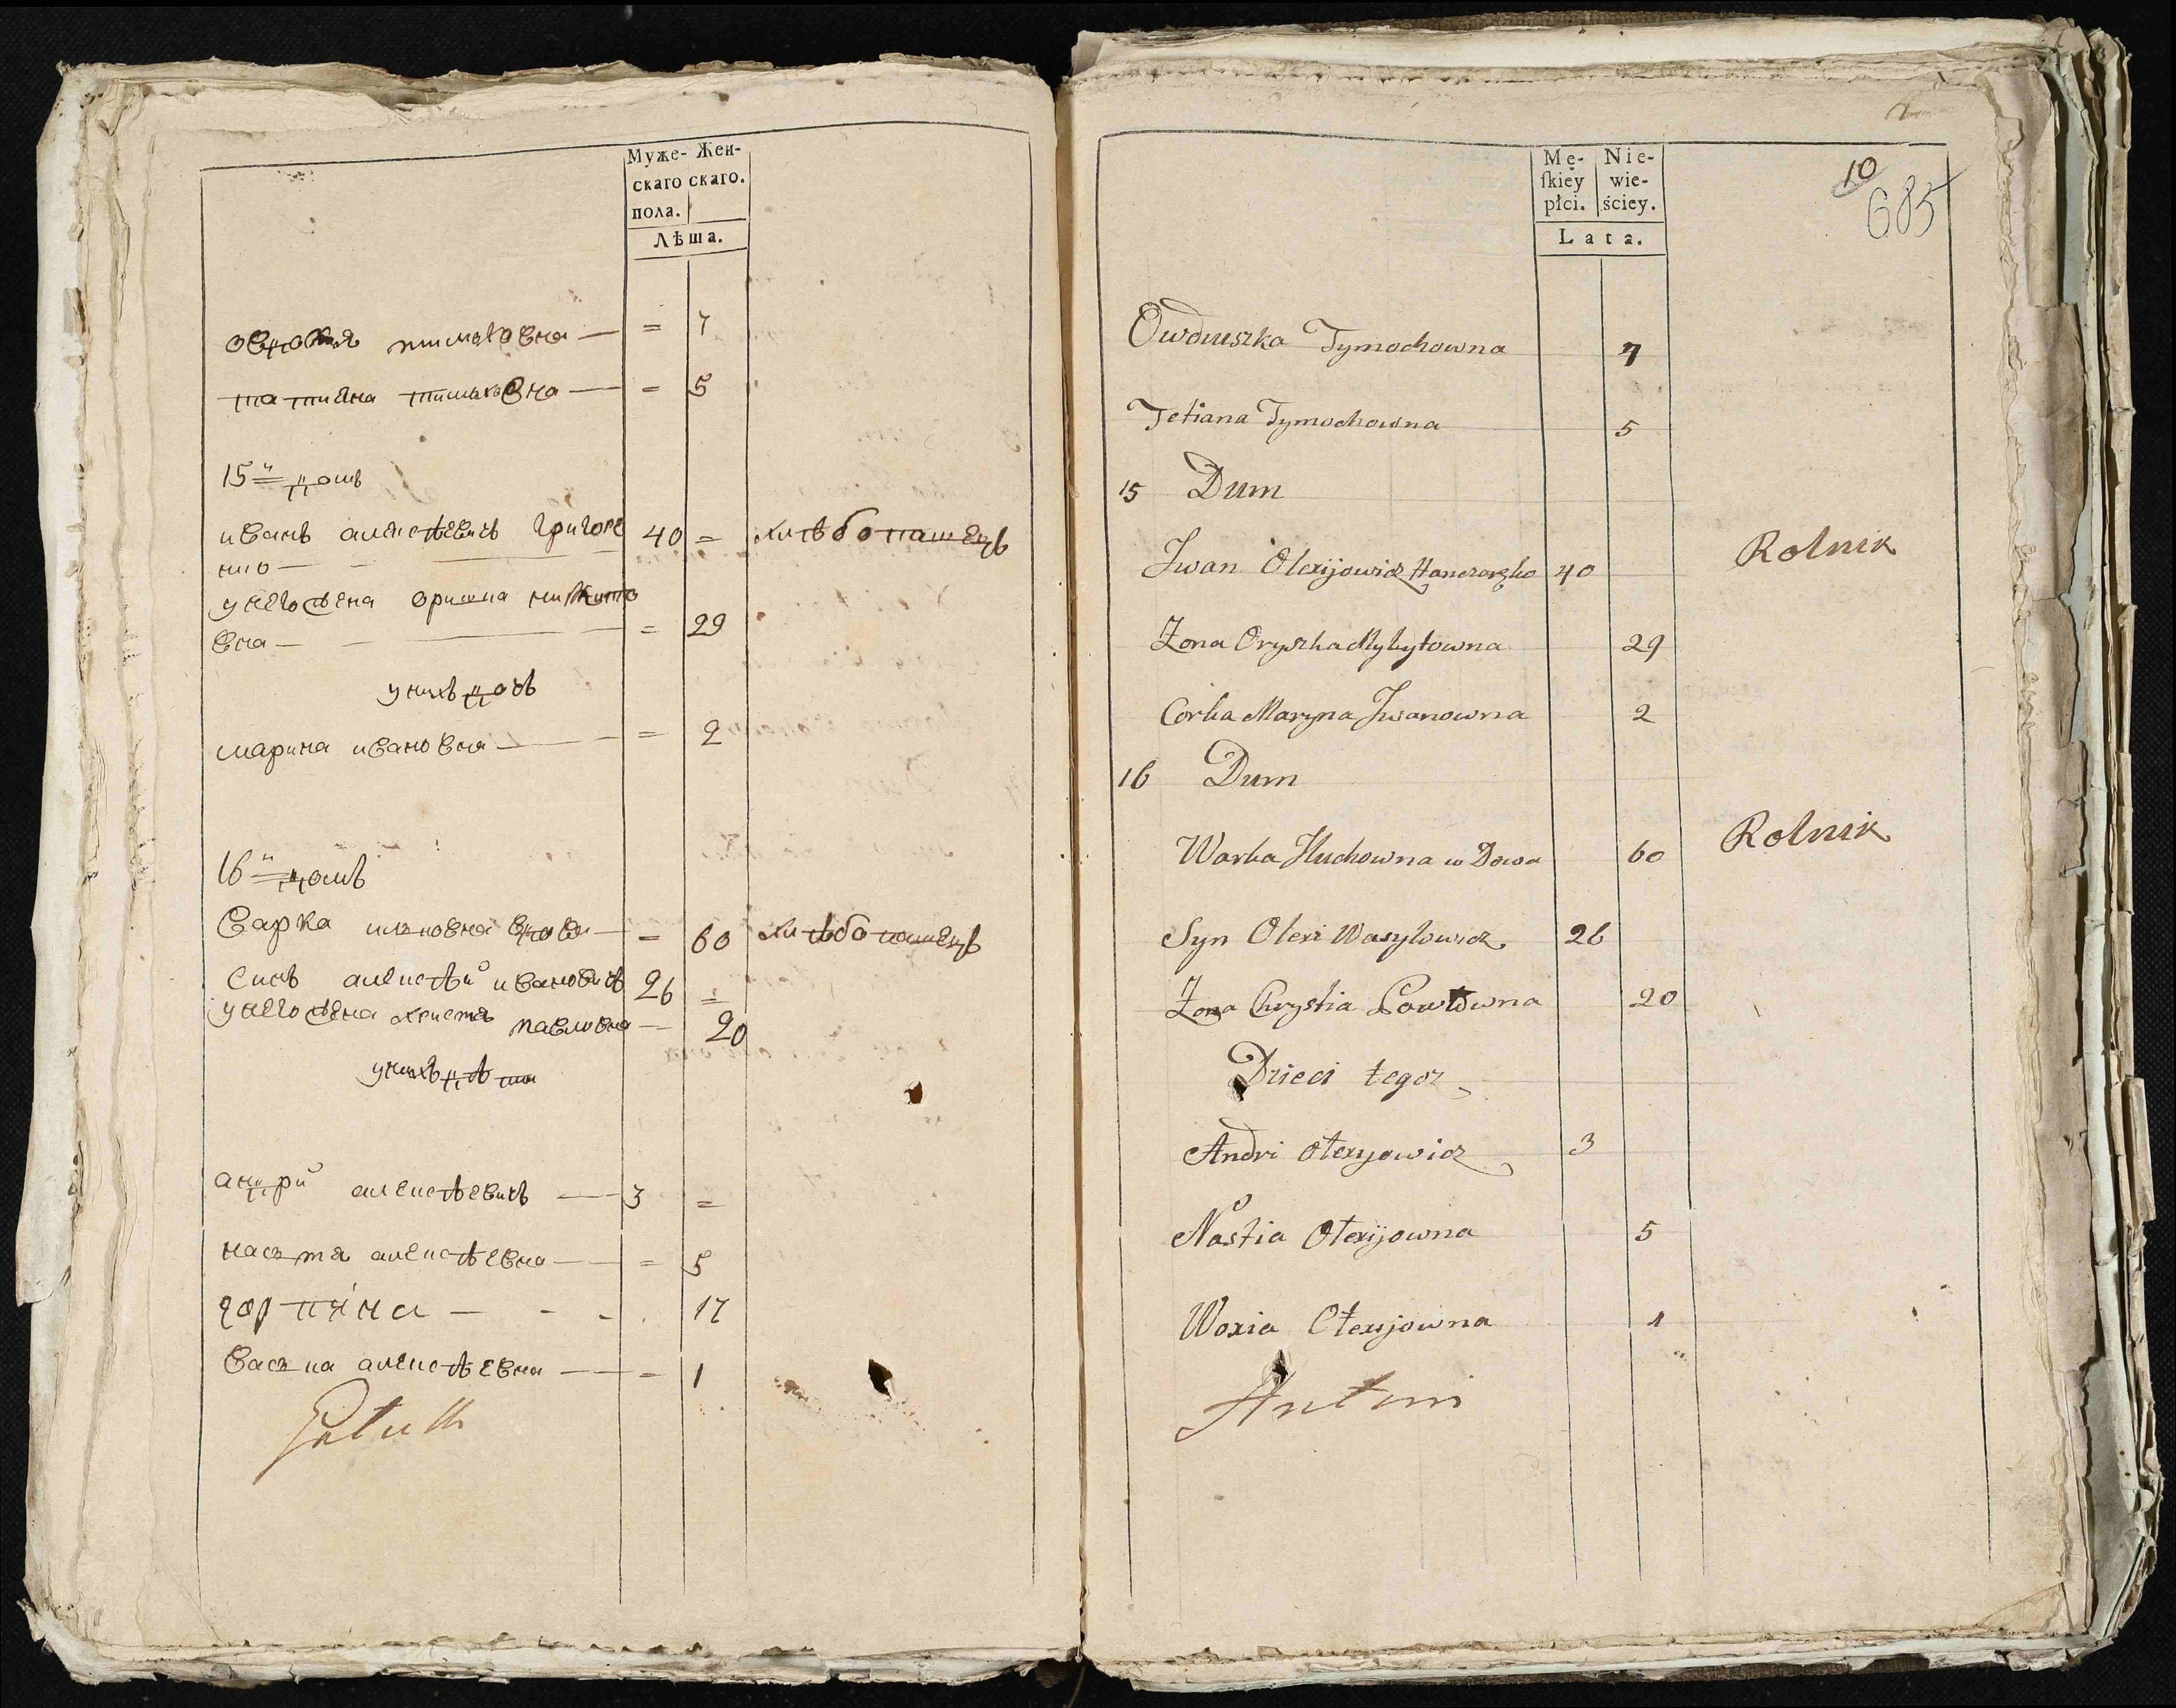 Муже- Жен-
скаго скаго.
пола.
Лѣта.
овдотя тимоховна — = 7
татияна тимоховна — = 5
15й домъ
иванъ алексѣевичъ 40 = хлѣбопашецъ
у него жена оришка никито
вна — = 29
у нихъ дочь
марина ивановна — = 2
16й домъ
Варка вдова — = 60 хлѣбопашецъ
Синъ алексѣй ивановичъ 26 =
у него жена христя павловна — 20
у нихъ дѣти
андрій алексѣевичъ — 3 =
настя алексѣевна — = 5
17
алексѣевна — = 1
Mę- Nie-
ſkiey wie-
płci. ściey.
Lata.
10
685
Owduszka Tymochowna 7
Tetiana Tymochowna 5
15 Dum
Iwan Olexijowicz 40 Rolnik
Zona Oryszka Mykytowna 29
Corka Maryna Iwanowna 2
16 Dum
Warka w Dowa 60 Rolnik
Syn Olexi Wasylowicz 26
Zona Chrystia Pawłowna 20
Dzieci tegoz
Andri Olexyowicz 3
Nastia Olexijowna 5
Woxia Olexijowna 1
Antoni